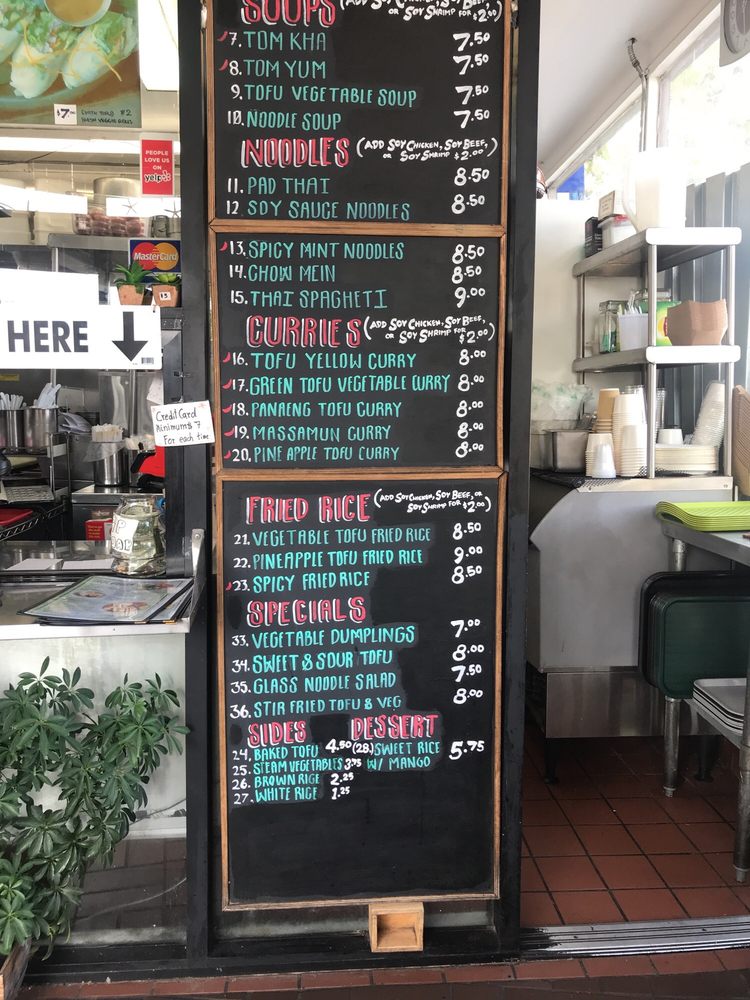 SOUPS (ADD SOY CHICKEN, SOY BEEF,
OR SOY SHRIMP FOR $2.00)
7. TOM KHA 7.50
8. TOM YUM 7.50
9. TOFU VEGETABLE SOUP 7.50
10. NOODLE SOUP 7.50
NOODLES (ADD SOY CHICKEN, SOY BEEF,
OR SOY SHRIMP $2.00)
11. PAD THAI 8.50
12. SOY SAUCE NOODLES 8.50
13. SPICY MINT NOODLES 8.50
14. CHOW MEIN 8.50
15. THAI SPAGHETI 9.00
CURRIES (ADD SOY CHICKEN, SOY BEEF,
OR SOY SHRIMP FOR $2.00)
16. TOFU YELLOW CURRY 8.00
17. GREEN TOFU VEGETABLE CURRY 8.00
18. PANAENG TOFU CURRY 8.00
19. MASSAMUN CURRY 8.00
20. PINE APPLE TOFU CURRY 8.00
FRIED RICE (ADD SOY CHICKEN, SOY BEEF, OR
SOY SHRIMP FOR $2.00)
21. VEGETABLE TOFU FRIED RICE 8.50
22. PINEAPPLE TOFU FRIED RICE 9.00
23. SPICY FRIED RICE 8.50
SPECIALS
33. VEGETABLE DUMPLINGS 7.00
34. SWEET & SOUR TOFU 8.00
35. GLASS NOODLE SALAD 7.50
36. STIR FRIED TOFU & VEG 8.00
SIDES DESSERT
24. BAKED TOFU 4.50 (28.) SWEET RICE 5.75
25. STEAM VEGETABLES 3.75 W/ MANGO
26. BROWN RICE 2.25
27. WHITE RICE 1.25
$7.00
PEOPLE
LOVE US
ON
yelp
MasterCard
13
HERE
Credit Card
Minimum $7
For each trans